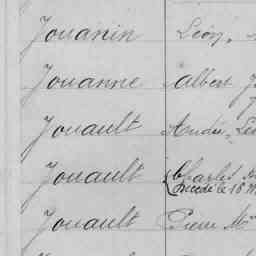 Jouanin Léon,
Jouanne Albert
Jouault André, Léo
Jouault Charles
Décédé le 16
Jouault Pierre M